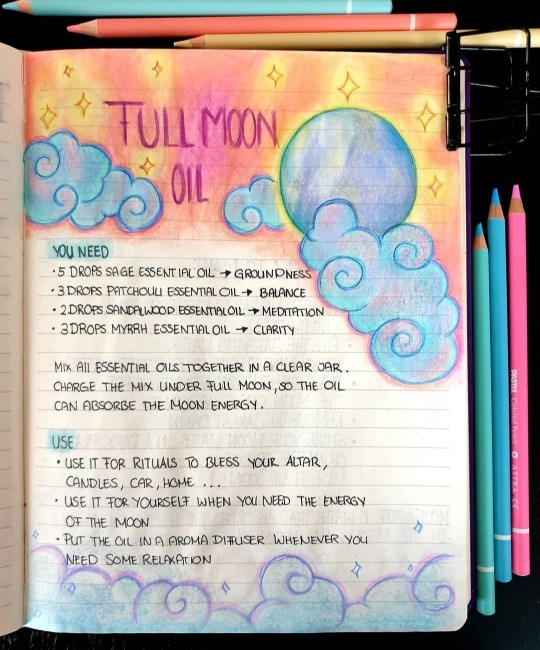 FULL MOON
OIL
YOU NEED
• 5 DROPS SAGE ESSENTIAL OIL → GROUNDNESS
• 3 DROPS PATCHOULI ESSENTIAL OIL → BALANCE
• 2 DROPS SANDALWOOD ESSENTIAL OIL → MEDITATION
• 3 DROPS MYRRH ESSENTIAL OIL → CLARITY
MIX All ESSENTIAL OILS TOGETHER IN A CLEAR JAR.
CHARGE THE MIX UNDER FULL MOON, SO THE OIL
CAN ABSORBE THE MOON ENERGY.
USE
• USE IT FOR RITUALS TO BLESS YOUR ALTAR,
CANDLES, CAR, HOME ...
• USE IT FOR YOURSELF WHEN YOU NEED THE ENERGY
OF THE MOON
• PUT THE OIL IN A AROMA DIFFUSER WHENEVER YOU
NEED SOME RELAXATION